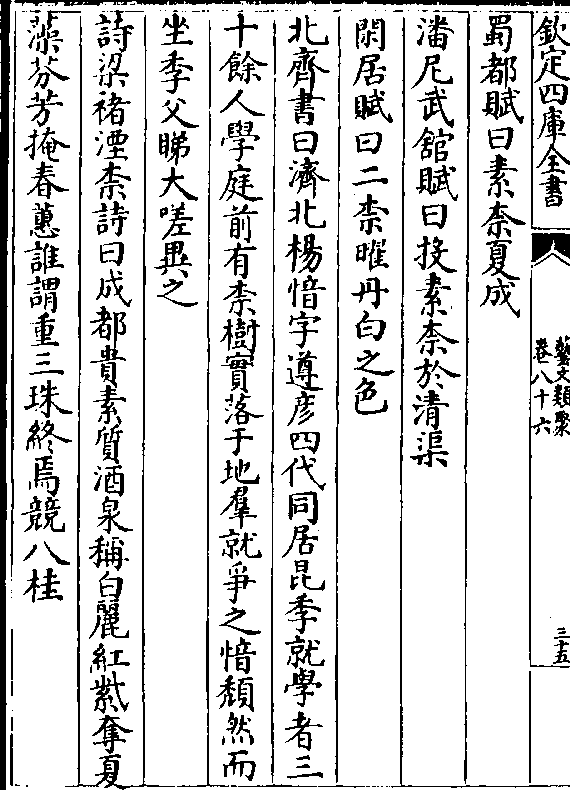 欽定四庫全書
藝文類聚
卷八十六
三十五
蜀都賦曰素柰夏成
潘尼武館賦曰投素柰於清渠
閑居賦曰二柰曜丹白之色
北齊書曰濟北楊愔字遵彦四代同居昆季就學者三
十餘人學庭前有柰樹實落于地羣就爭之愔頽然而
坐季父睇大嗟異之
詩梁褚澐柰詩曰成都貴素質酒泉稱白麗紅紫奪夏
藻芬芳掩春蕙誰謂重三珠終焉競八桂